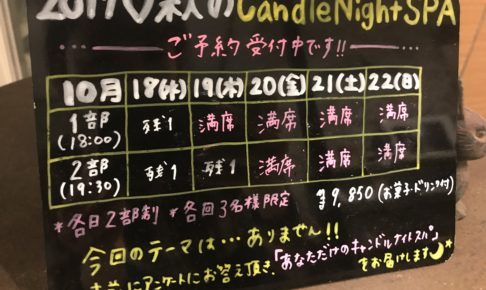 2017秋のCandleNightSPA
ご予約受付中です!!
10月 18(水) 19(木) 20(金) 21(土) 22(日)
1部(18:00) 残1 満席 満席 満席 満席
2部(19:30) 残1 残1 満席 満席 満席
*各日2部制 *各回3名様限定 ¥9,850(お菓子・ドリンク付)
今回のテーマは…ありません!!
事前にアンケートにお答え頂き、「あなただけのキャンドルナイトスパ」をお届けします